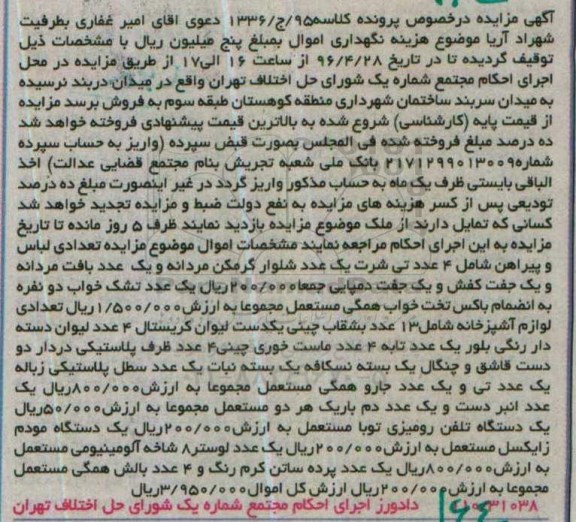 آگهی مزایده درخصوص پرونده کلاسه۹۵/ج/۱۳۳۶ دعوی اقای امیر غفاری بطرفیت
شهراد آریا موضوع هزینه نگهداری اموال بمبلغ پنج میلیون ریال با مشخصات ذیل
توقیف گردیده تا در تاریخ ۹۶/۴/۲۸ از ساعت ۱۶ الی۱۷ از طریق مزایده در محل
اجرای احکام مجتمع شماره یک شورای حل اختلاف تهران واقع در میدان دربند نرسیده
به میدان سربند ساختمان شهرداری منطقه کوهستان طبقه سوم به فروش برسد مزایده
از قیمت پایه (کارشناسی) شروع شده به بالاترین قیمت پیشنهادی فروخته خواهد شد
ده درصد مبلغ فروخته شده فی المجلس بصورت قبض سپرده (واریز به حساب سپرده
شماره۲۱۷۱۲۹۹۰۱۳۰۰۹ بانک ملی شعبه تجریش بنام مجتمع قضایی عدالت) اخذ
الباقی بایستی ظرف یک ماه به حساب مذکور واریز گردد در غیر اینصورت مبلغ ده درصد
تودیعی پس از کسر هزینه های مزایده به نفع دولت ضبط و مزایده تجدید خواهد شد
کسانی که تمایل دارند از ملک موضوع مزایده بازدید نمایند ظرف ۵ روز مانده تا تاریخ
مزایده به این اجرای احکام مراجعه نمایند مشخصات اموال موضوع مزایده تعدادی لباس
و پیراهن شامل ۴ عدد تی شرت یک عدد شلوار گرمکن مردانه و یک عدد بافت مردانه
و یک جفت کفش و یک جفت دمپایی جمعا۲۰۰/۰۰۰ریال یک عدد تشک خواب دو نفره
به انضمام باکس تخت خواب همگی مستعمل مجموعا به ارزش۱/۵۰۰/۰۰۰ریال تعدادی
لوازم آشپزخانه شامل۱۳ عدد بشقاب چینی یکدست لیوان کریستال ۴ عدد لیوان دسته
دار رنگی بلور یک عدد تابه ۴ عدد ماست خوری چینی۴ عدد ظرف پلاستیکی دردار دو
دست قاشق و چنگال یک بسته نسکافه یک بسته نبات یک عدد سطل پلاستیکی زباله
یک عدد تی و یک عدد جارو همگی مستعمل مجموعا به ارزش۸۰۰/۰۰۰ریال یک
عدد انبر دست و یک عدد دم باریک هر دو مستعمل مجموعا به ارزش۵۰/۰۰۰ریال
یک دستگاه تلفن رومیزی توبا مستعمل به ارزش۲۰۰/۰۰۰ریال یک دستگاه مودم
زایکسل مستعمل به ارزش۲۰۰/۰۰۰ریال یک عدد لوستر۸ شاخه آلومینیومی مستعمل
به ارزش۸۰۰/۰۰۰ریال یک عدد پرده ساتن کرم رنگ و ۴ عدد بالش همگی مستعمل
مجموعا به ارزش۲۰۰/۰۰۰ریال ارزش کل اموال۳/۹۵۰/۰۰۰ریال
دادورز اجرای احکام مجتمع شماره یک شورای حل اختلاف تهران